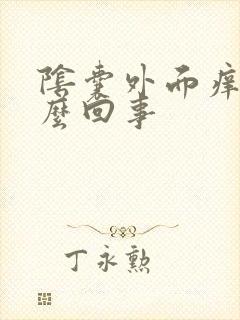 陰囊外面痒
麼回事
丁永勲